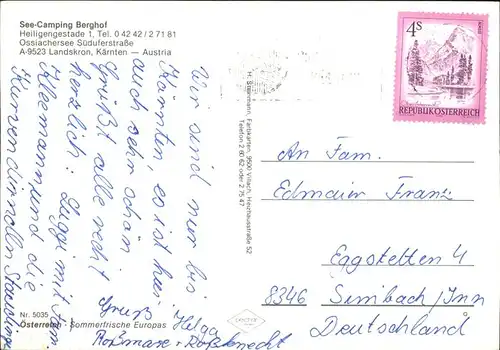 See-Camping Berghof
Heiligengestade 1, Tel. 0 42 42 / 2 71 81
Ossiachersee Süduferstraße
A-9523 Landskron, Kärnten — Austria
Wir sind nur bis
Kärnten, es ist hier
auch sehr schön
Grüßt alle recht
herzlich: Luggi mit Fam
Kleemann und die
Gruß Helga
Nr. 5035
Österreich · Sommerfrische Europas
H. Steinmann, Farbkarten, 9500 Villach, Heizhausstraße 52
Telefon 2 60 62 oder 2 75 47
4s
REPUBLIK ÖSTERREICH
An Fam.
Edmaier Franz
Eggstetten 4
8346 Simbach/Inn
Deutschland